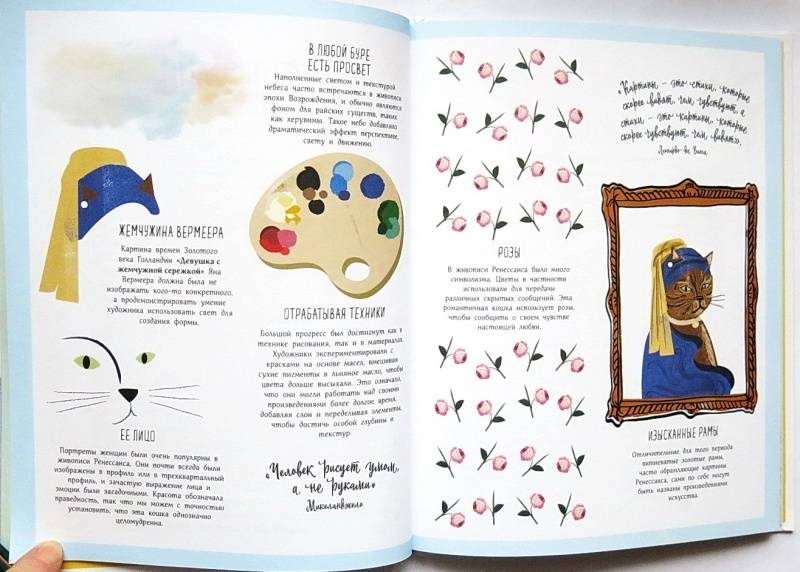 В ЛЮБОЙ БУРЕ
ЕСТЬ ПРОСВЕТ
Наполненные светом и текстурой
небеса часто встречаются в живописи
эпохи Возрождения, и обычно являются
фоном для райских существ, таких
как херувимы. Такое небо добавляло
драматический эффект перспективе,
свету и движению.
ЖЕМЧУЖИНА ВЕРМЕЕРА
Картина времен Золотого
века Голландии «Девушка с
жемчужной сережкой» Яна
Вермеера должна была не
изображать кого-то конкретного,
а продемонстрировать умение
художника использовать свет для
создания формы.
ОТРАБАТЫВАЯ ТЕХНИКИ
Большой прогресс был достигнут как в
технике рисования, так и в материалах.
Художники экспериментировали с
красками на основе масел, вмешивая
сухие пигменты в льняное масло, чтобы
цвета дольше высыхали. Это означало,
что они могли работать над своими
произведениями более долгое время,
добавляя слои и переделывая элементы,
чтобы достичь особой глубины и
текстур.
ЕЕ ЛИЦО
Портреты женщин были очень популярны в
живописи Ренессанса. Они почти всегда были
изображены в профиль или в трехквартальный
профиль, и зачастую выражение лица и
эмоции были загадочными. Красота обозначала
праведность, так что мы можем с точностью
установить, что эта кошка однозначно
целомудренна.
«Человек рисует умом,
а не руками»
Микеланджело
«Картины – это стихи, которые
скорее видят, чем чувствуют, а
стихи – это картины, которые
скорее чувствуют, чем видят».
Леонардо да Винчи
РОЗЫ
В живописи Ренессанса было много
символизма. Цветы в частности
использовали для передачи
различных скрытых сообщений. Эта
романтичная кошка использует розы,
чтобы сообщить о своем чувстве
настоящей любви.
ИЗЫСКАННЫЕ РАМЫ
Отличительные для того периода
витиеватые золотые рамы,
часто обрамляющие картины
Ренессанса, сами по себе могут
быть названы произведениями
искусства.